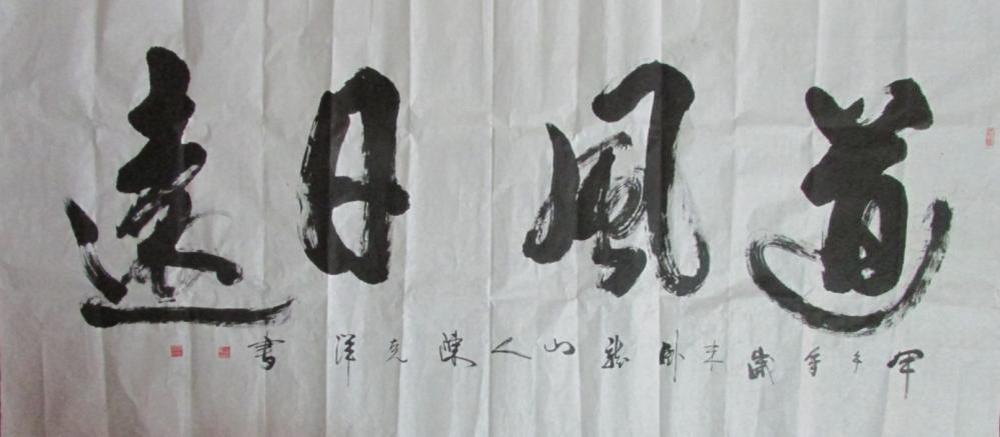 道風日遠
甲午年歲末卧龍山人陳克洋書